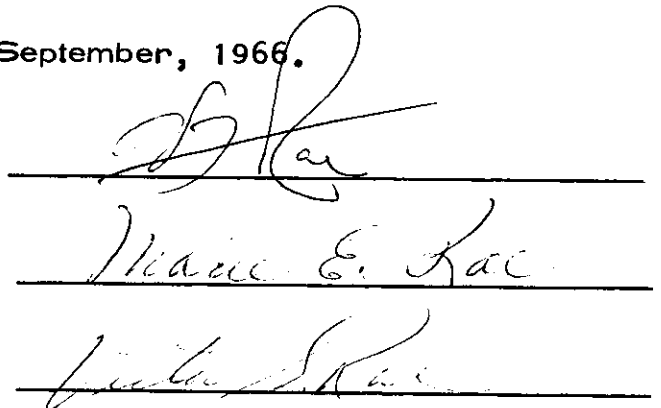 September, 1966.
Rae
Marie E. Rae
S. Rae